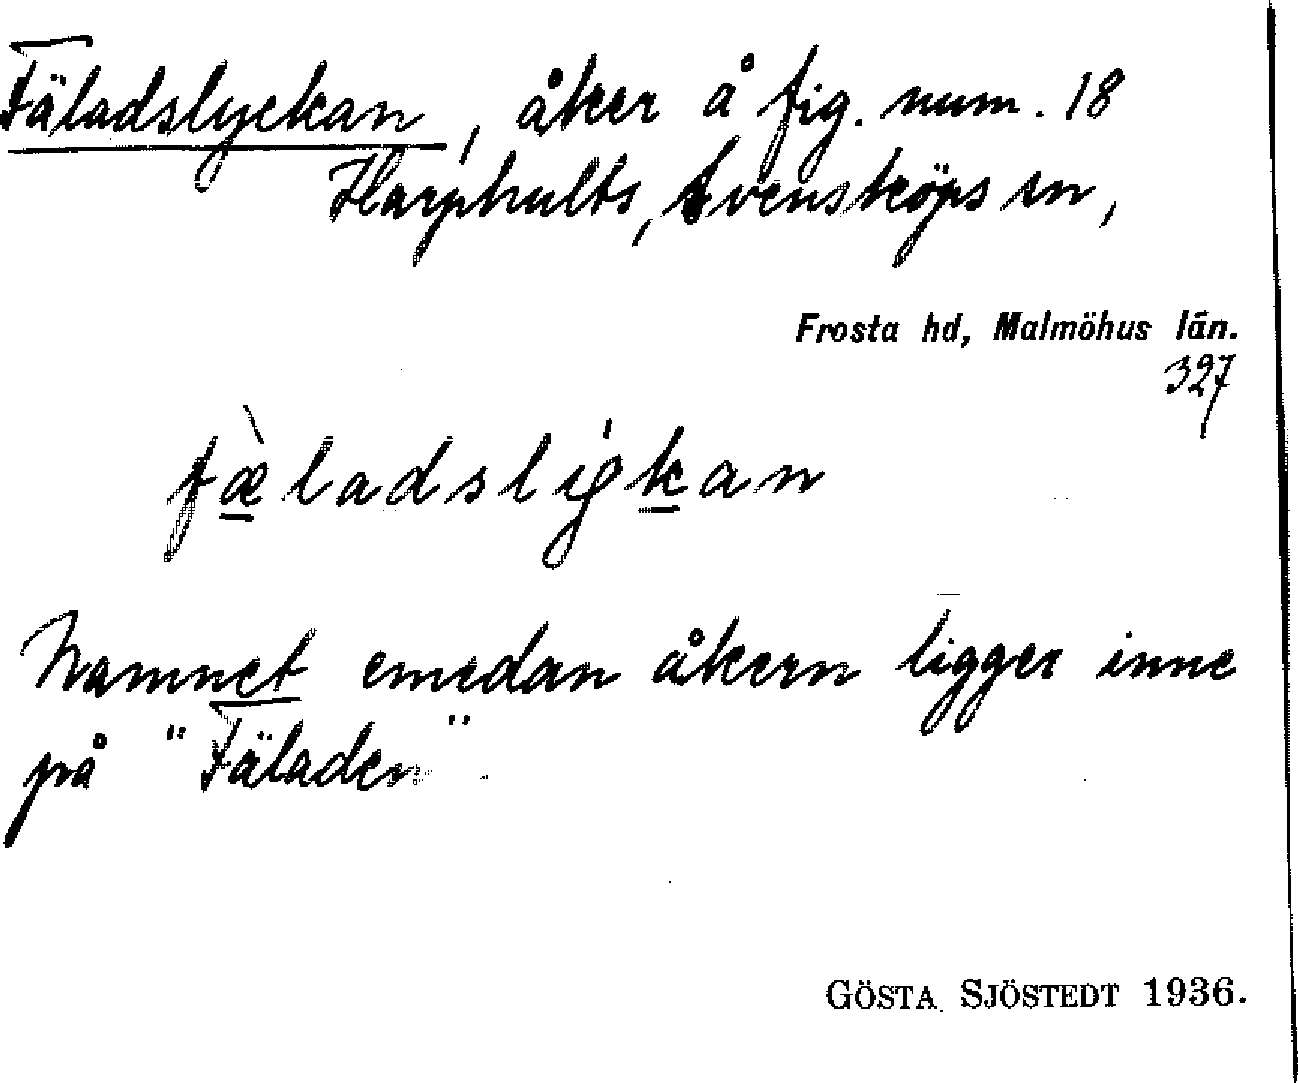 Fäladslyckan, åker å fig. num. 18
Harphults, Svensköps sn,
Frosta hd, Malmöhus län.
327
fæ̀ladsligkan
Namnet emedan åkern ligger inne
på "Fäladen".
GÖSTA SJÖSTEDT 1936.